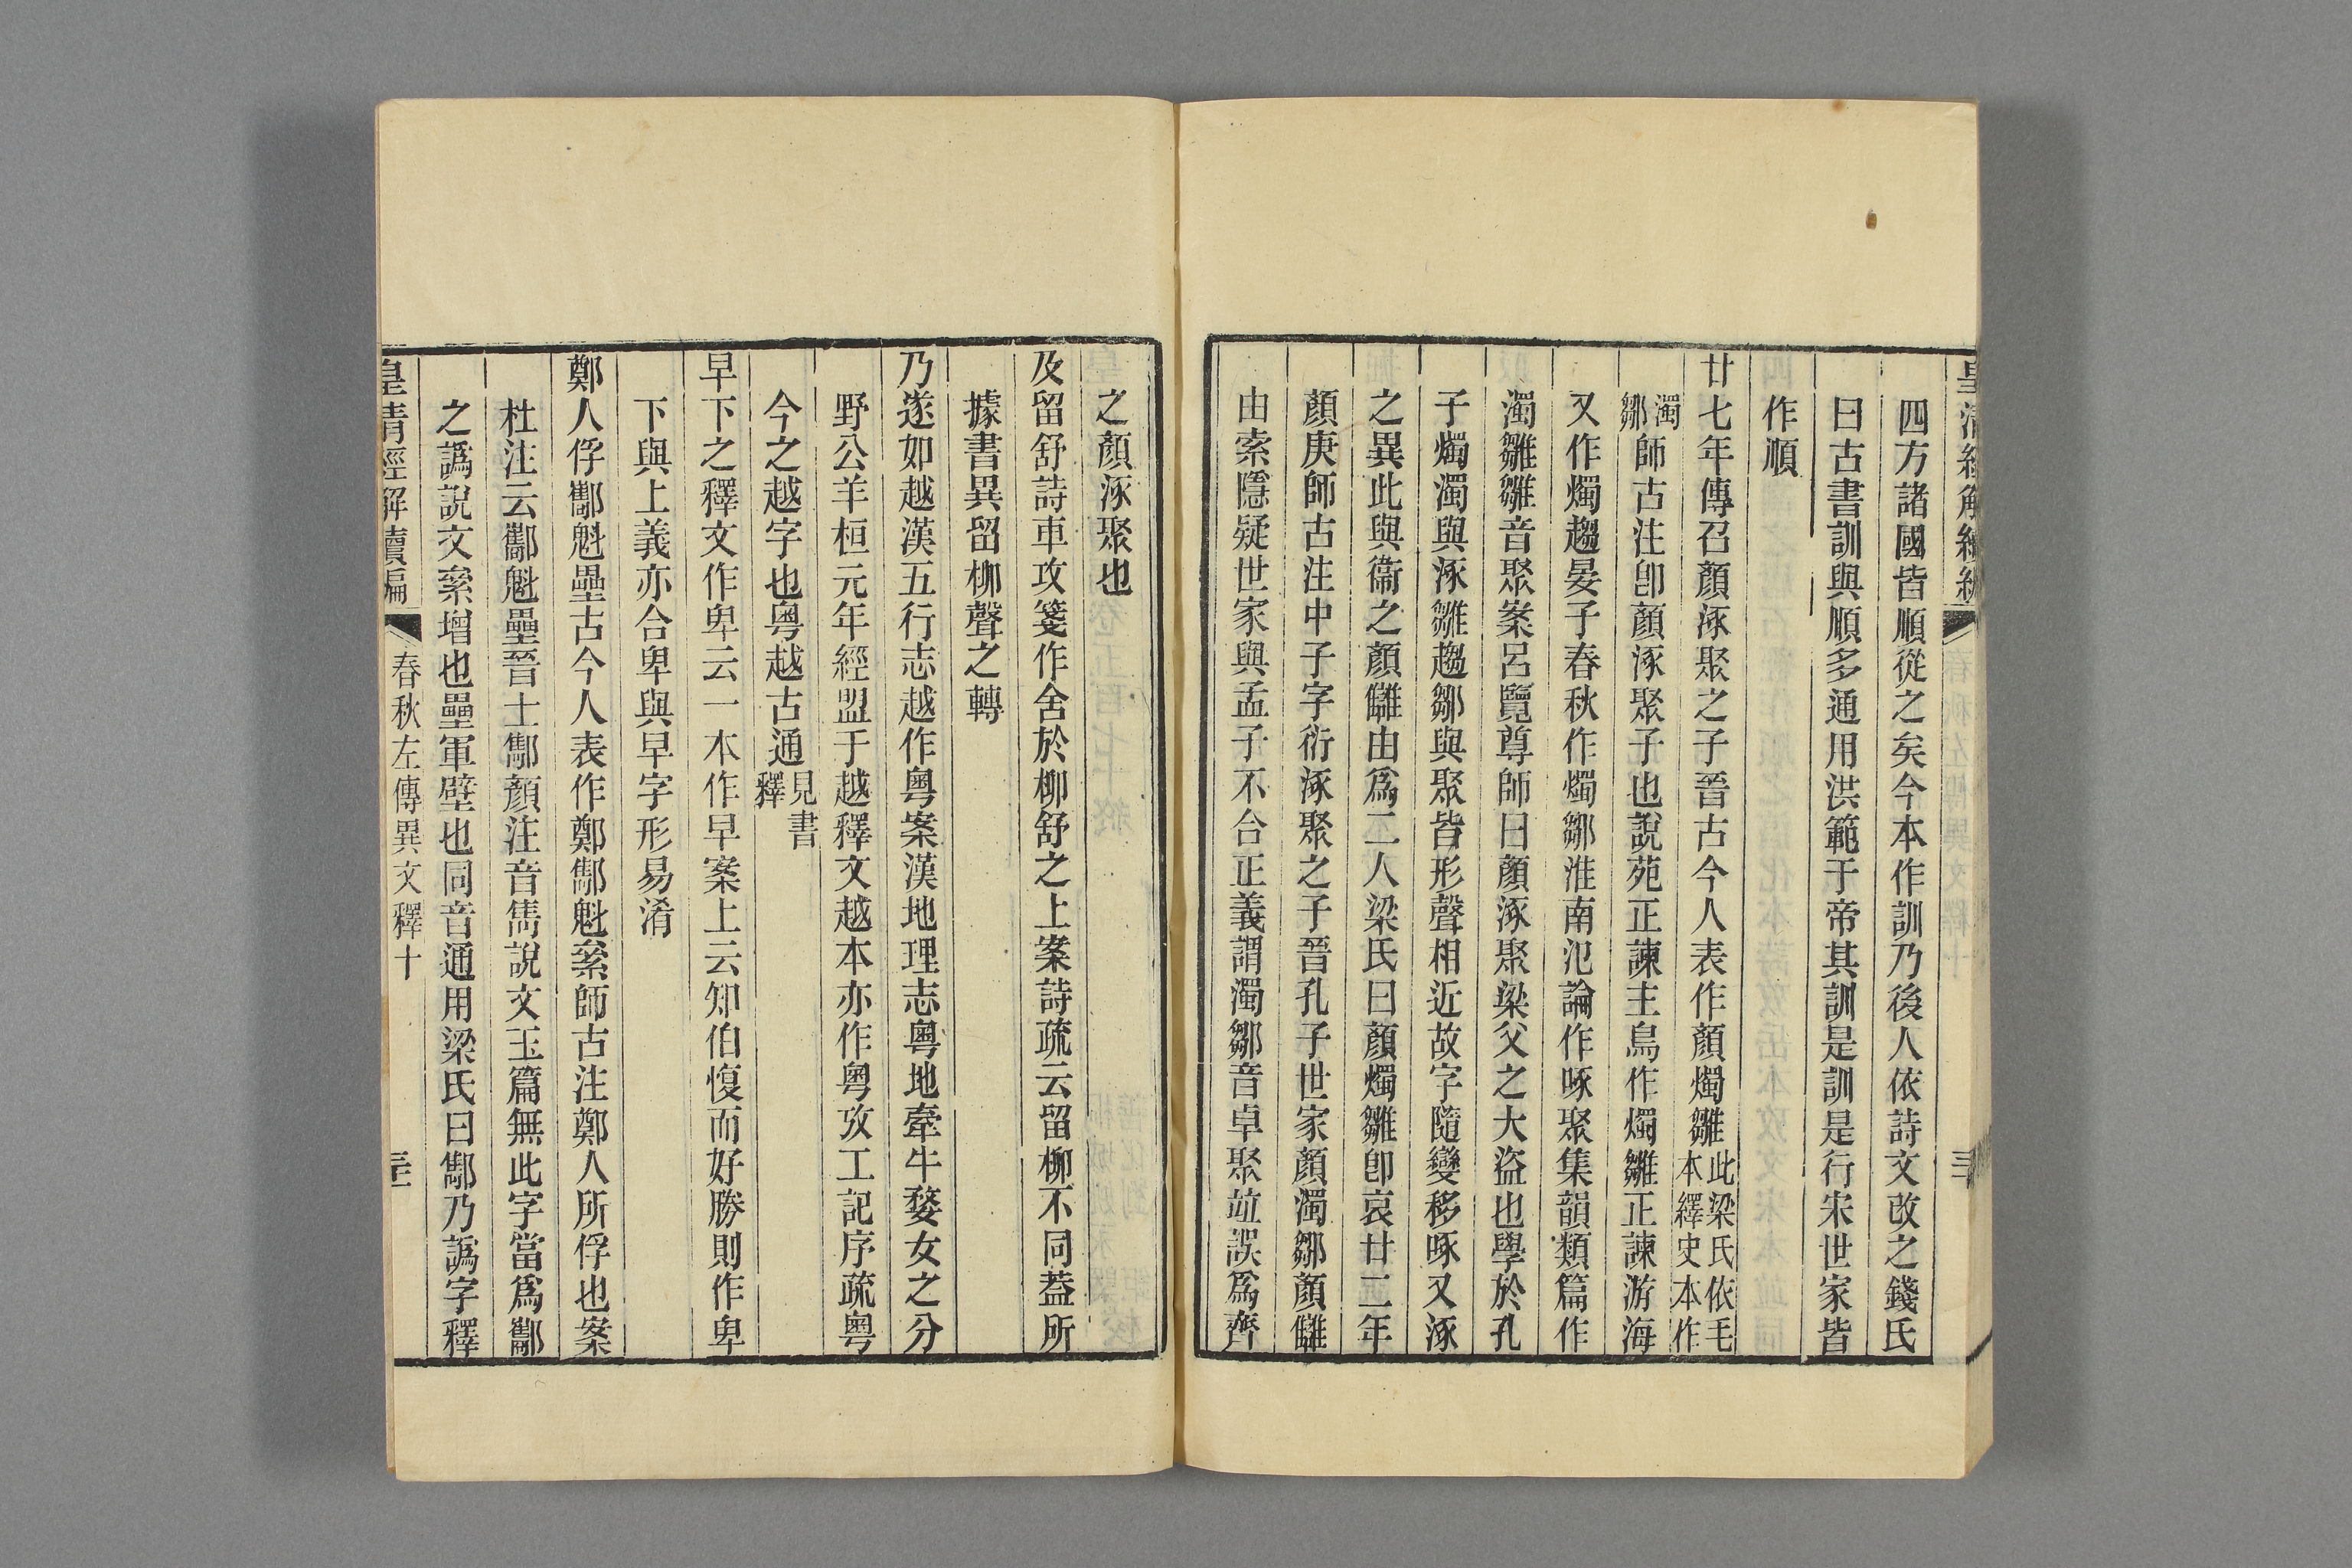 四方諸國皆順從之矣今本作訓乃後人依詩文改之錢氏
曰古書訓與順多通用洪範于帝其訓是訓是行宋世家皆
作順
廿七年傳召顏涿聚之子晉古今人表作顏燭雛此梁氏依毛本繹史本作
濁鄒師古注卽顏涿聚子也說苑正諫主鳥作燭雛正諫游海
又作燭趨晏子春秋作燭鄒淮南氾論作啄聚集韻類篇作
濁雛雛音聚案呂覽尊師曰顏涿聚梁父之大盜也學於孔
子燭濁與涿雛趨鄒與聚皆形聲相近故字隨變移啄又涿
之異此與衞之顏讎由爲二人梁氏曰顏燭雛卽哀廿二年
顏庚師古注中子字衍涿聚之子晉孔子世家顏濁鄒顏讎
由索隱疑世家與孟子不合正義謂濁鄒音卓聚竝誤爲齊
之顏涿聚也
及留舒詩車攻箋作舍於柳舒之上案詩疏云留柳不同葢所
據書異留柳聲之轉
乃遂如越漢五行志越作粵案漢地理志粵地牽牛婺女之分
野公羊桓元年經盟于越釋文越本亦作粵攷工記序疏粵
今之越字也粵越古通見書釋
早下之釋文作卑云一本作早案上云知伯愎而好勝則作卑
下與上義亦合卑與早字形易淆
鄭人俘酅魁壘古今人表作鄭酅魁絫師古注鄭人所俘也案
杜注云酅魁壘晉士酅顏注音雋說文玉篇無此字當爲酅
之譌說文絫增也壘軍壁也同音通用梁氏曰酅乃譌字釋
皇清經解續編
春秋左傳異文釋十